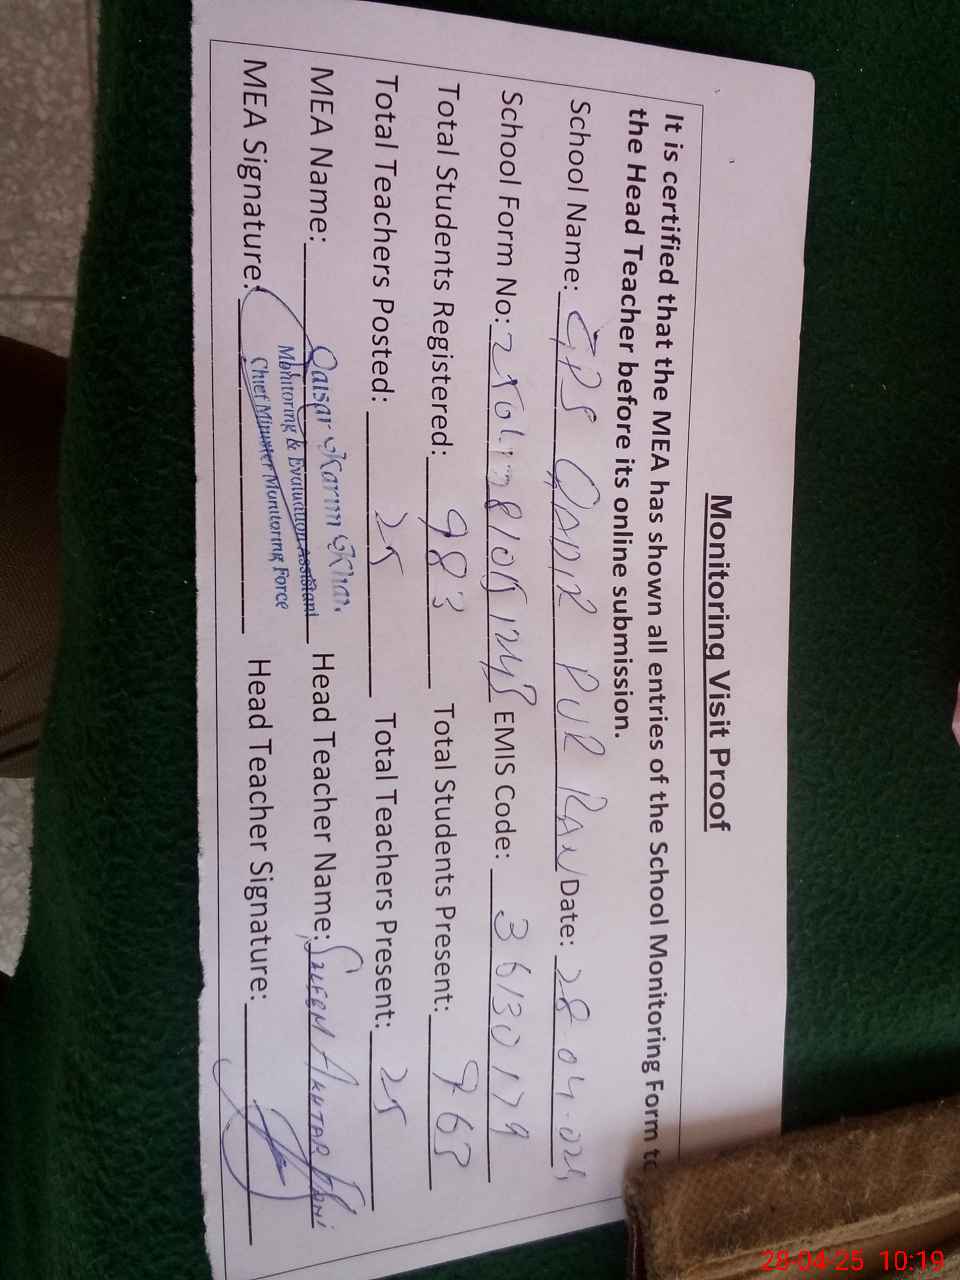 Monitoring Visit Proof
It is certified that the MEA has shown all entries of the School Monitoring Form to
the Head Teacher before its online submission.
School Name: GPS QADIR PUR RAN Date: 28.04.025
School Form No: EMIS Code: 36130179
Total Students Registered: 983 Total Students Present: 963
Total Teachers Posted: 25 Total Teachers Present: 25
MEA Name: Qaisar Karim Khan Head Teacher Name: AKHTAR
Monitoring & Evaluation Assistant
Chief Minister Monitoring Force
MEA Signature: Head Teacher Signature:
28-04-25 10:19